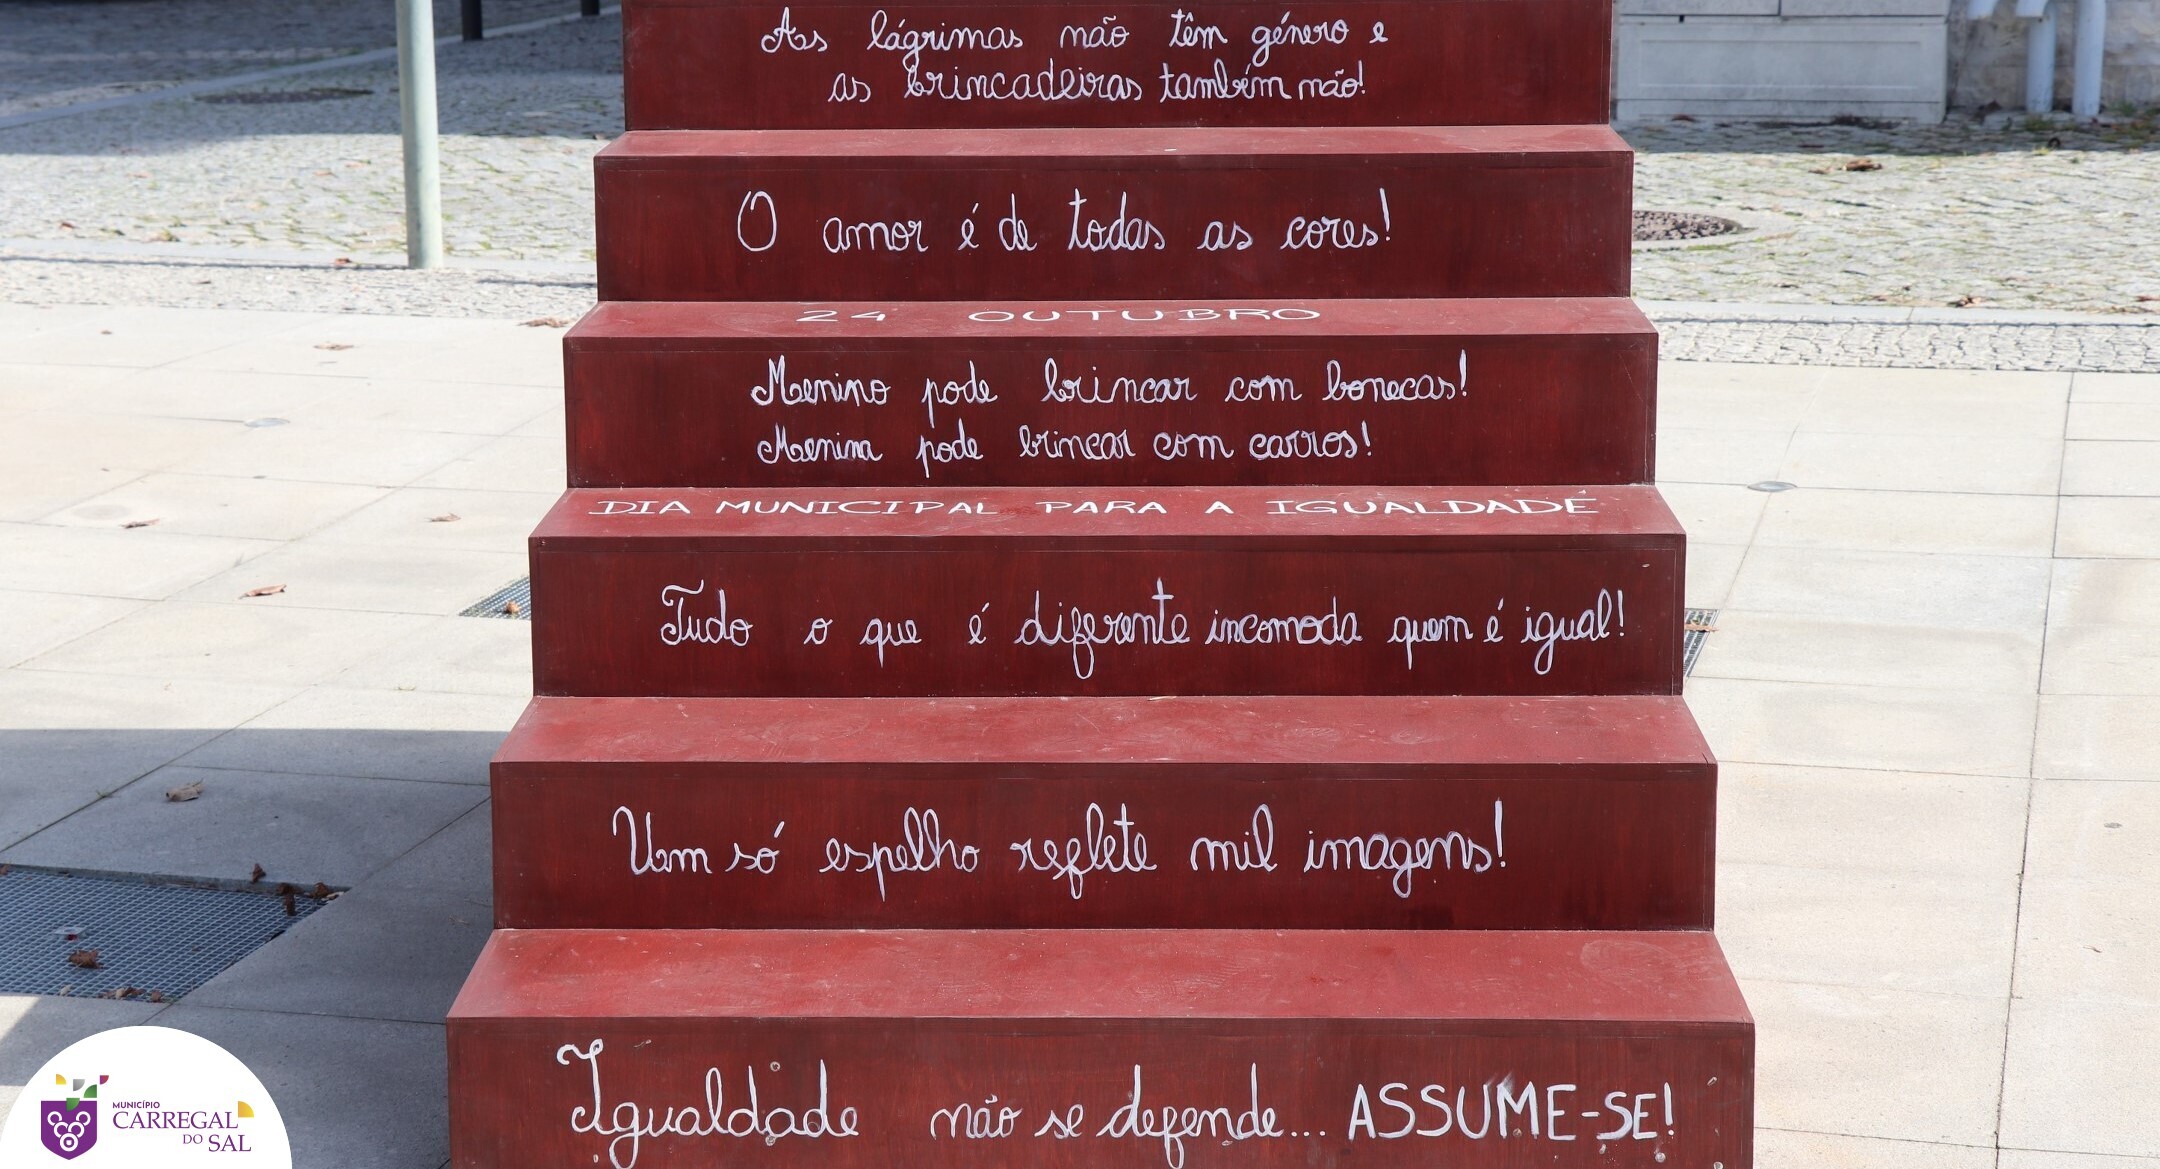 As lágrimas não têm género e
as brincadeiras também não!
O amor é de todas as cores!
24 OUTUBRO
Menino pode brincar com bonecas!
Menina pode brincar com carros!
DIA MUNICIPAL PARA A IGUALDADE
Tudo o que é diferente incomoda quem é igual!
Um só espelho reflete mil imagens!
Igualdade não se defende... ASSUME-SE!
MUNICÍPIO
CARREGAL
DO SAL